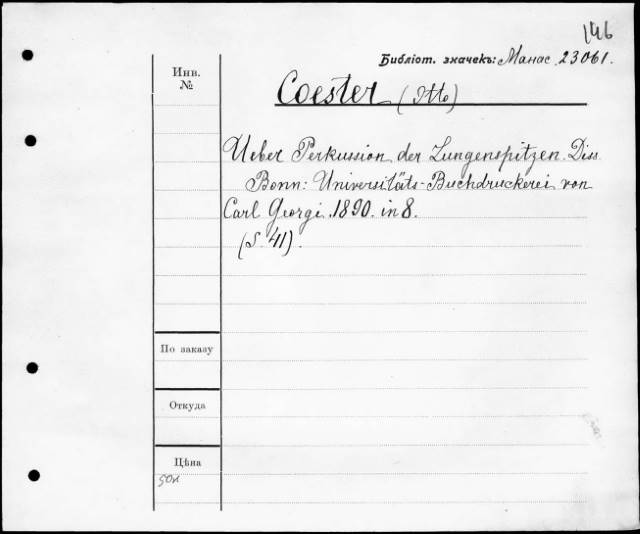 146
Библіот. значекъ: Манас. 23061.
Инв. №
Coester (Otto)
Ueber Perkussion der Lungenspitzen. Diss.
Bonn: Universitäts-Buchdruckerei von
Carl Georgi. 1890. in 8.
(S. 41).
По заказу
Откуда
Цѣна
50к